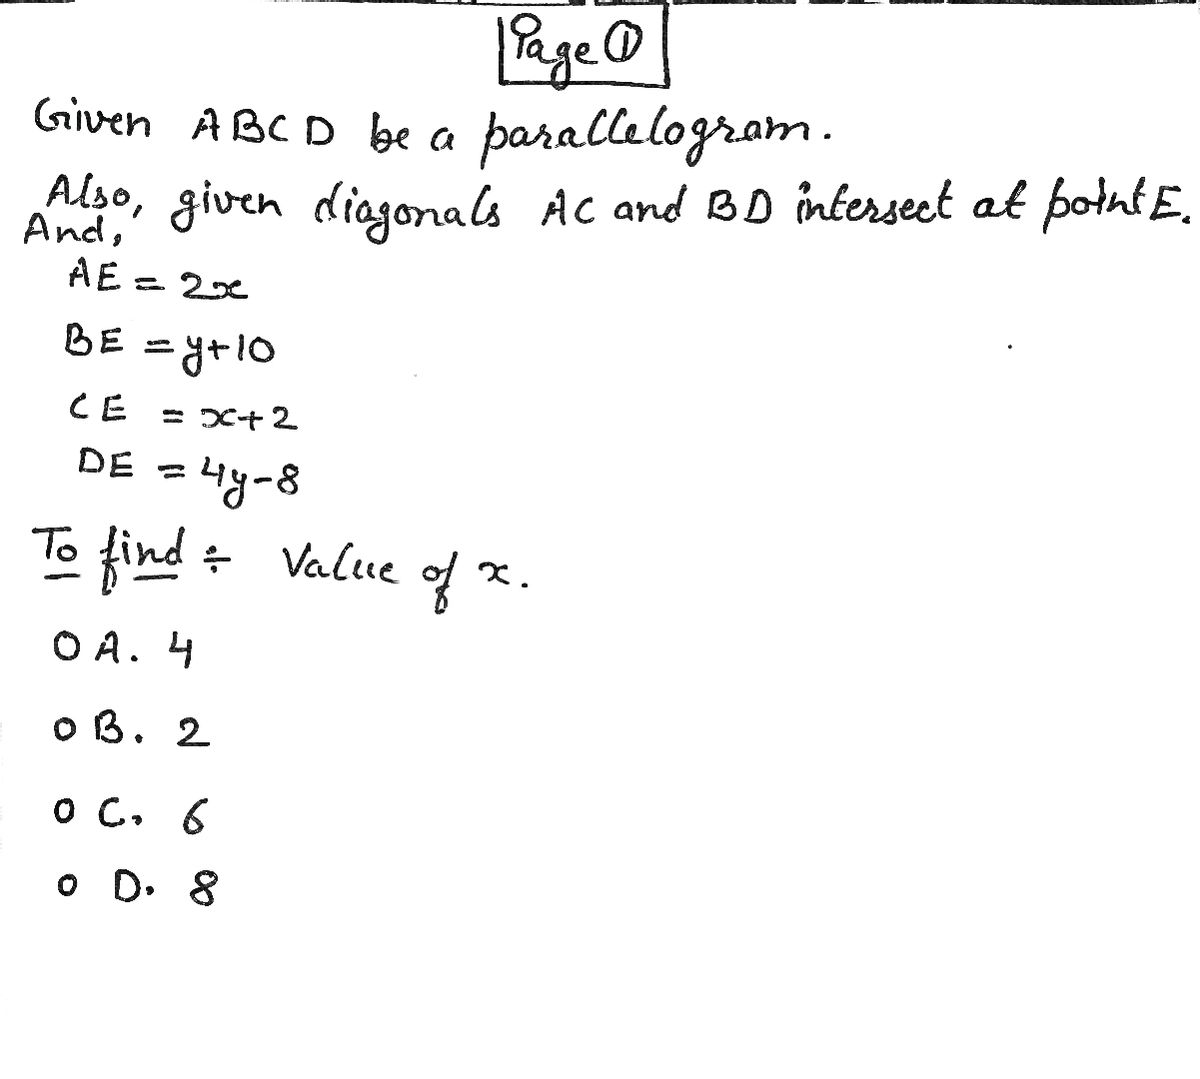 Page ①
Given ABCD be a parallelogram.
Also, given diagonals AC and BD intersect at point E.
And,
AE = 2x
BE = y+10
CE = x+2
DE = 4y-8
To find ÷ Value of x.
O A. 4
O B. 2
O C. 6
O D. 8